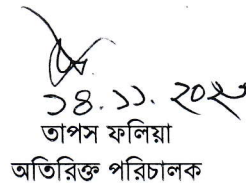 ১৪.১১.২০২
তাপস ফলিয়া
অতিরিক্ত পরিচালক